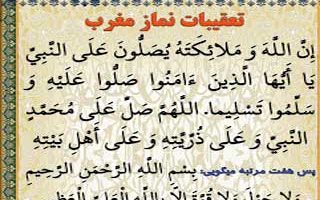 تعقیبات نماز مغرب
إِنَّ اللَّهَ وَ مَلَائِكَتَهُ يُصَلُّونَ عَلَى النَّبِيِّ
يَا أَيُّهَا الَّذِينَ ءَامَنُوا صَلُّوا عَلَيْهِ وَ
سَلِّمُوا تَسْلِيما. اللَّهُمَّ صَلِّ عَلَى مُحَمَّدٍ
النَّبِيِّ وَ عَلَى ذُرِّيَّتِهِ وَ عَلَى أَهْلِ بَيْتِهِ
پس هفت مرتبه میگویی: بِسْمِ اللَّهِ الرَّحْمَنِ الرَّحِيمِ
وَلَا حَوْلَ وَلَا قُوَّةَ إِلَّا بِاللَّهِ الْعَلِيِّ الْعَظِيمِ